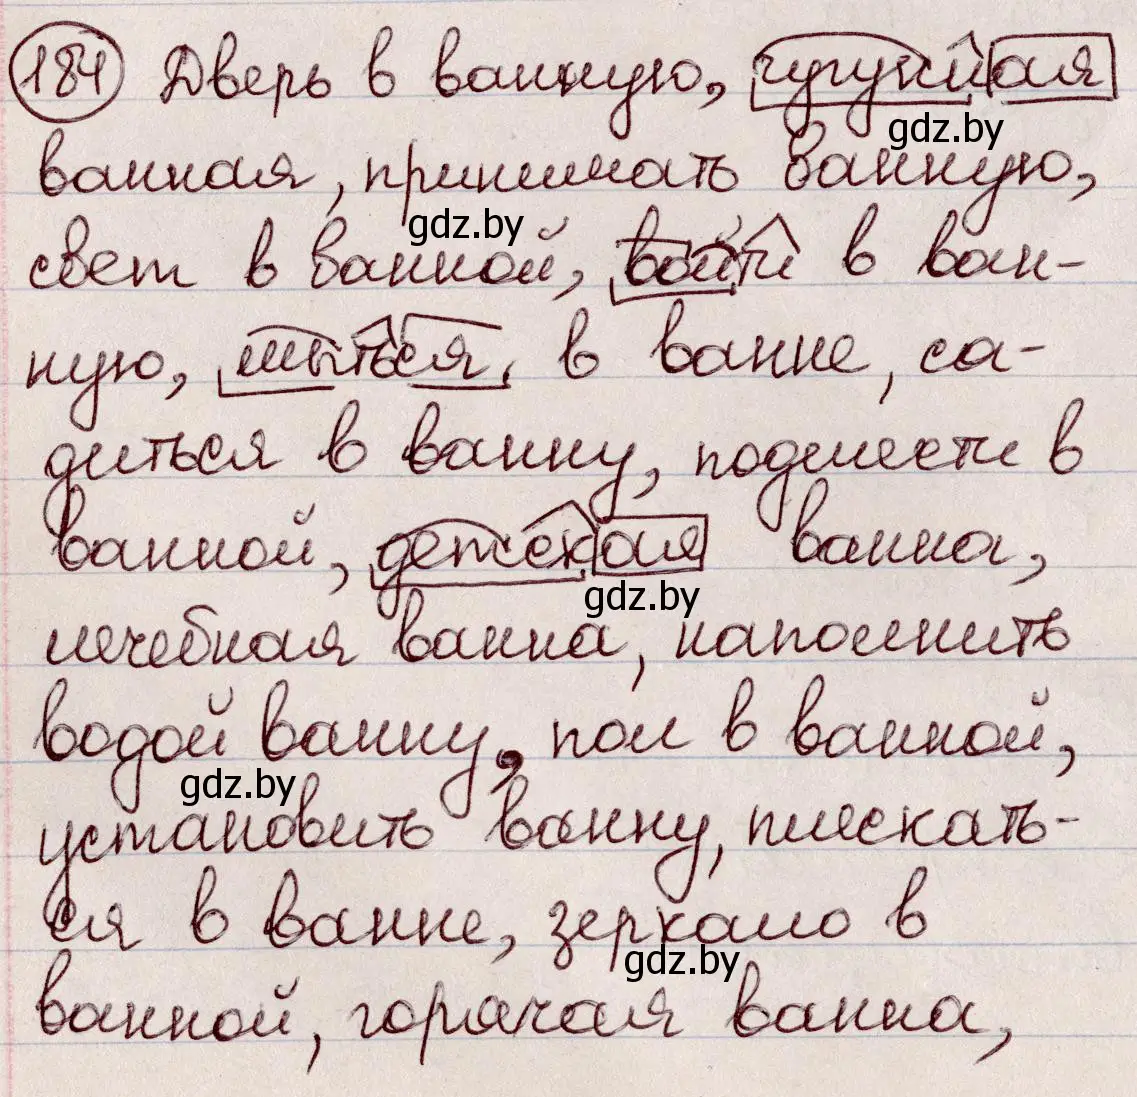 184 Дверь в ванную, чугунная
gdz.by
ванная, принимать ванную,
gdz.by
свет в ванной, войти в ван-
ную, мыться, в ванне, са-
диться в ванну, подмести в
ванной, детская ванна,
gdz.by
лечебная ванна, наполнить
водой ванну, пол в ванной,
gdz.by
установить ванну, плескать-
ся в ванне, зеркало в
gdz.by
ванной, горячая ванна,